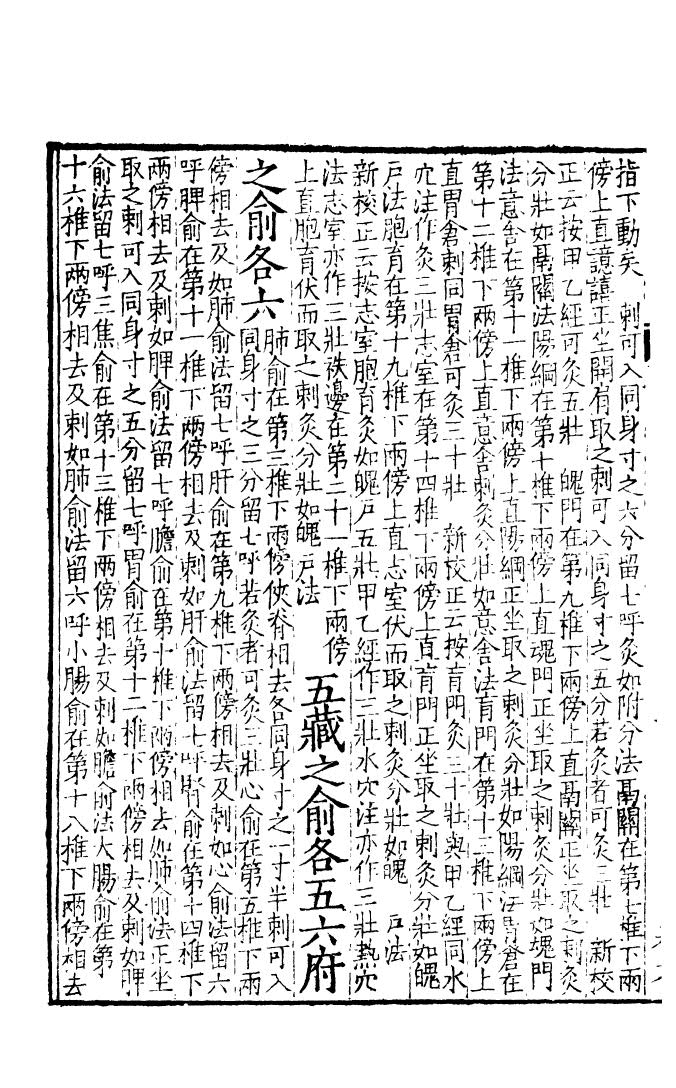 指下動矣　刺可入同身寸之六分留七呼灸如附分法鬲關在第七椎下兩
傍上直譩譆正坐開肩取之刺可入同身寸之五分若灸者可灸三壯　新校
正云按甲乙經可灸五壯　魄門在第九椎下兩傍上直鬲關正坐取之刺灸
分壯如鬲關法陽綱在第十椎下兩傍上直魂門正坐取之刺灸分壯如魂門
法意舍在第十一椎下兩傍上直陽綱正坐取之刺灸分壯如陽綱法胃倉在
第十二椎下兩傍上直意舍刺灸分壯如意舍法肓門在第十三椎下兩傍上
直胃倉刺同胃倉可灸三十壯　新校正云按肓門灸三十壯與甲乙經同水
穴注作灸三壯志室在第十四椎下兩傍上直肓門正坐取之刺灸分壯如魄
戸法胞肓在第十九椎下兩傍上直志室伏而取之刺灸分壯如魄　戸法
新校正云按志室胞肓灸如魄戸五壯甲乙經作三壯水穴注亦作三壯熱穴
法志室亦作三壯秩邊在第二十一椎下兩傍
上直胞肓伏而取之刺灸分壯如魄戸法　五藏之俞各五六府
之俞各六　肺俞在第三椎下兩傍俠脊相去各同身寸之一寸半刺可入
同身寸之三分留七呼若灸者可灸三壯心俞在第五椎下兩
傍相去及如肺俞法留七呼肝俞在第九椎下兩傍相去及刺如心俞法留六
呼脾俞在第十一椎下兩傍相去及刺如肝俞法留七呼腎俞在第十四椎下
兩傍相去及刺如脾俞法留七呼膽俞在第十椎下兩傍相去如肺俞法正坐
取之刺可入同身寸之五分留七呼胃俞在第十二椎下兩傍相去及刺如脾
俞法留七呼三焦俞在第十三椎下兩傍相去及刺如膽俞法大腸俞在第
十六椎下兩傍相去及刺如肺俞法留六呼小腸俞在第十八椎下兩傍相去